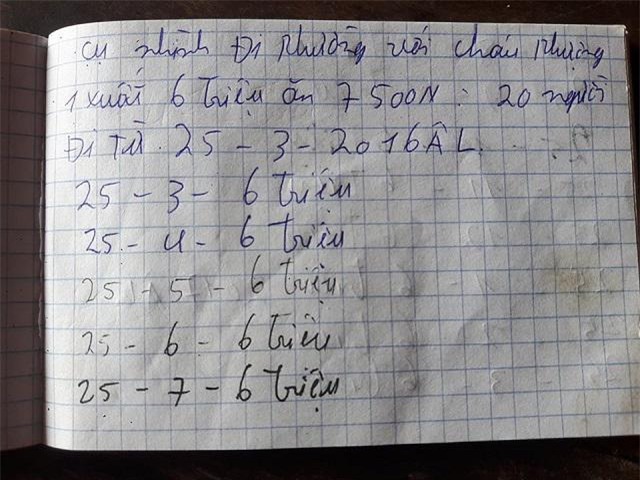 cụ nhình Đi phường với cháu phượng
1 xuất 6 triệu ăn 7 500N : 20 người
Đi Từ. 25 - 3 - 2016 ÂL.
25 - 3 - 6 triệu
25 - 4 - 6 triệu
25 - 5 - 6 triệu
25 - 6 - 6 triệu
25 - 7 - 6 triệu